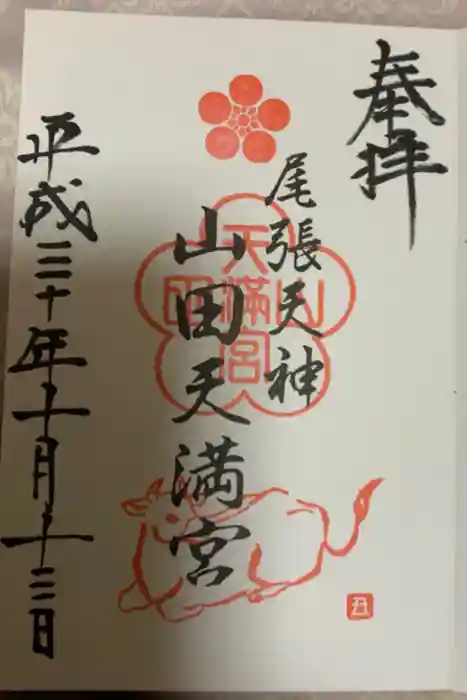 奉拝
尾張天神
山田天満宮
平成三十年十月十三日
山田
天満宮
丑